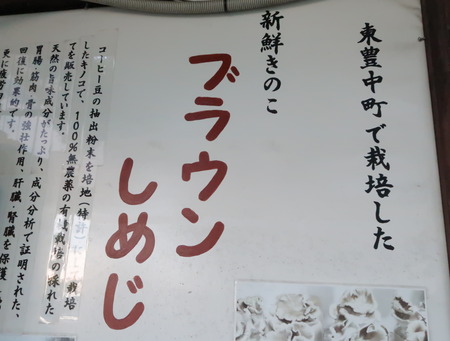 東豊中町で栽培した
新鮮きのこ
ブラウン
しめじ
コーヒー豆の抽出粉末を培地(特許)
したキノコで、100%無農薬の有機栽培の採れた
てを販売しています。
天然の旨味成分がたっぷり、成分分析で証明された、
胃腸・筋肉・骨の強壮作用、肝臓・腎臓を保護
回復に効果的です。
更に疲労回